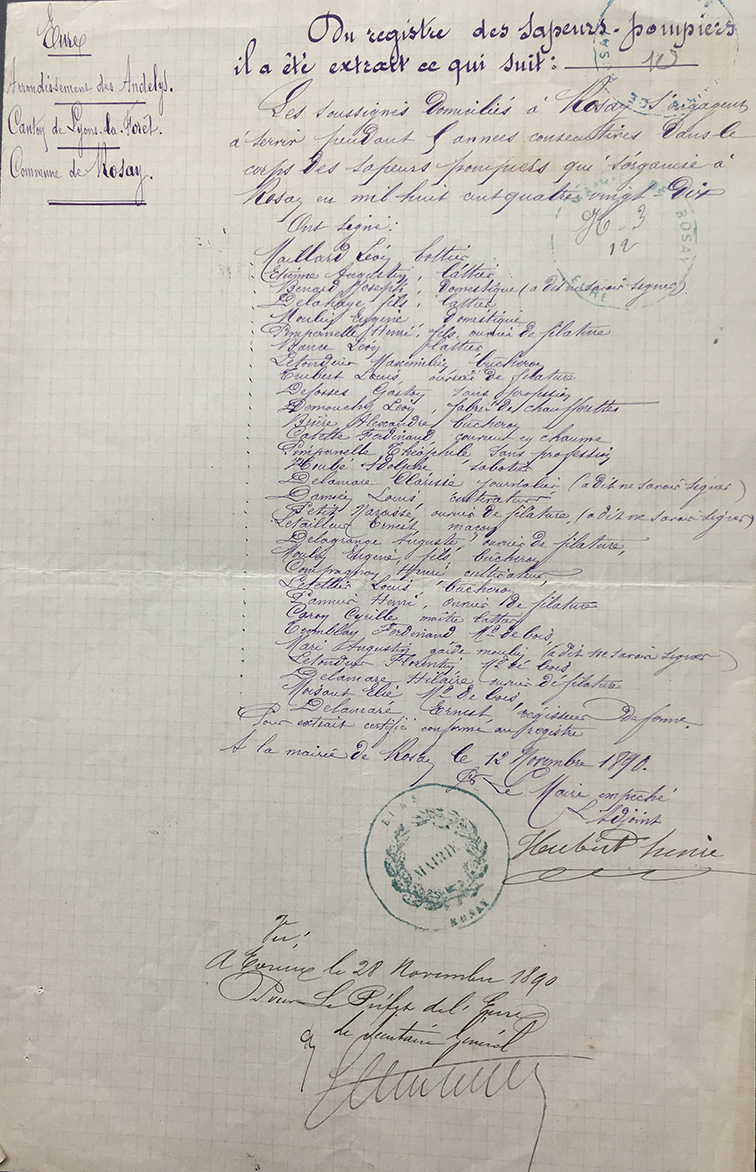 Eure
Arrondissement des Andelys.
Canton de Lyons-la-Forêt.
Commune de Rosay.
Du registre des sapeurs-pompiers
il a été extrait ce qui suit :
Les soussignés domiciliés à Rosay s'engagent
à servir pendant 5 années consécutives dans le
corps des sapeurs pompiers qui s'organise à
Rosay en mil huit cent quatre vingt dix
Ont signé :
Maillard Léon
Etienne Augustin, lattier
Benard Joseph, domestique (a dit ne savoir signer)
Delahaye fils, lattier
Moulin Eugène domestique
Pimparelle Henri, fils, ouvrier de filature
Léon lattier
Letondeur Maximilien bûcheron
Louis, ouvrier de filature
Defosses Gaston sans profession
Demouchy Léon, fabt de chaufferettes
Alexandre bûcheron
Ferdinand, couvreur en chaume
Pimparelle Théophile sans profession
Adolphe, sabotier
Delamare Clarisse journalier (a dit ne savoir signer)
Damien Louis cultivateur
Petit Narcisse, ouvrier de filature, (a dit ne savoir signer)
Letailleur Ernest maçon
Delagrange Auguste ouvrier de filature,
Eugène, fils, bûcheron
Compagnon Henri cultivateur
Letellier Louis, bûcheron
Pannier Henri, ouvrier de filature
Caron Cyrille maître lattier
Tremblay Ferdinand, Md de bois,
Mari Augustin garde moulin (a dit ne savoir signer)
Letondeur Florentin Md de bois
Delamare Hilaire ouvrier de filature
Moisant Elie Md de bois
Delamare Ernest, régisseur de ferme.
Pour extrait certifié conforme au registre
A la mairie de Rosay le 12 Novembre 1890.
Pr Le Maire empêché
L'Adjoint
Hubert
MAIRIE
ROSAY
EURE
MAIRIE DE ROSAY
EURE
Vu,
A Evreux le 28 Novembre 1890
Pour Le Préfet de l'Eure
Le secrétaire Général